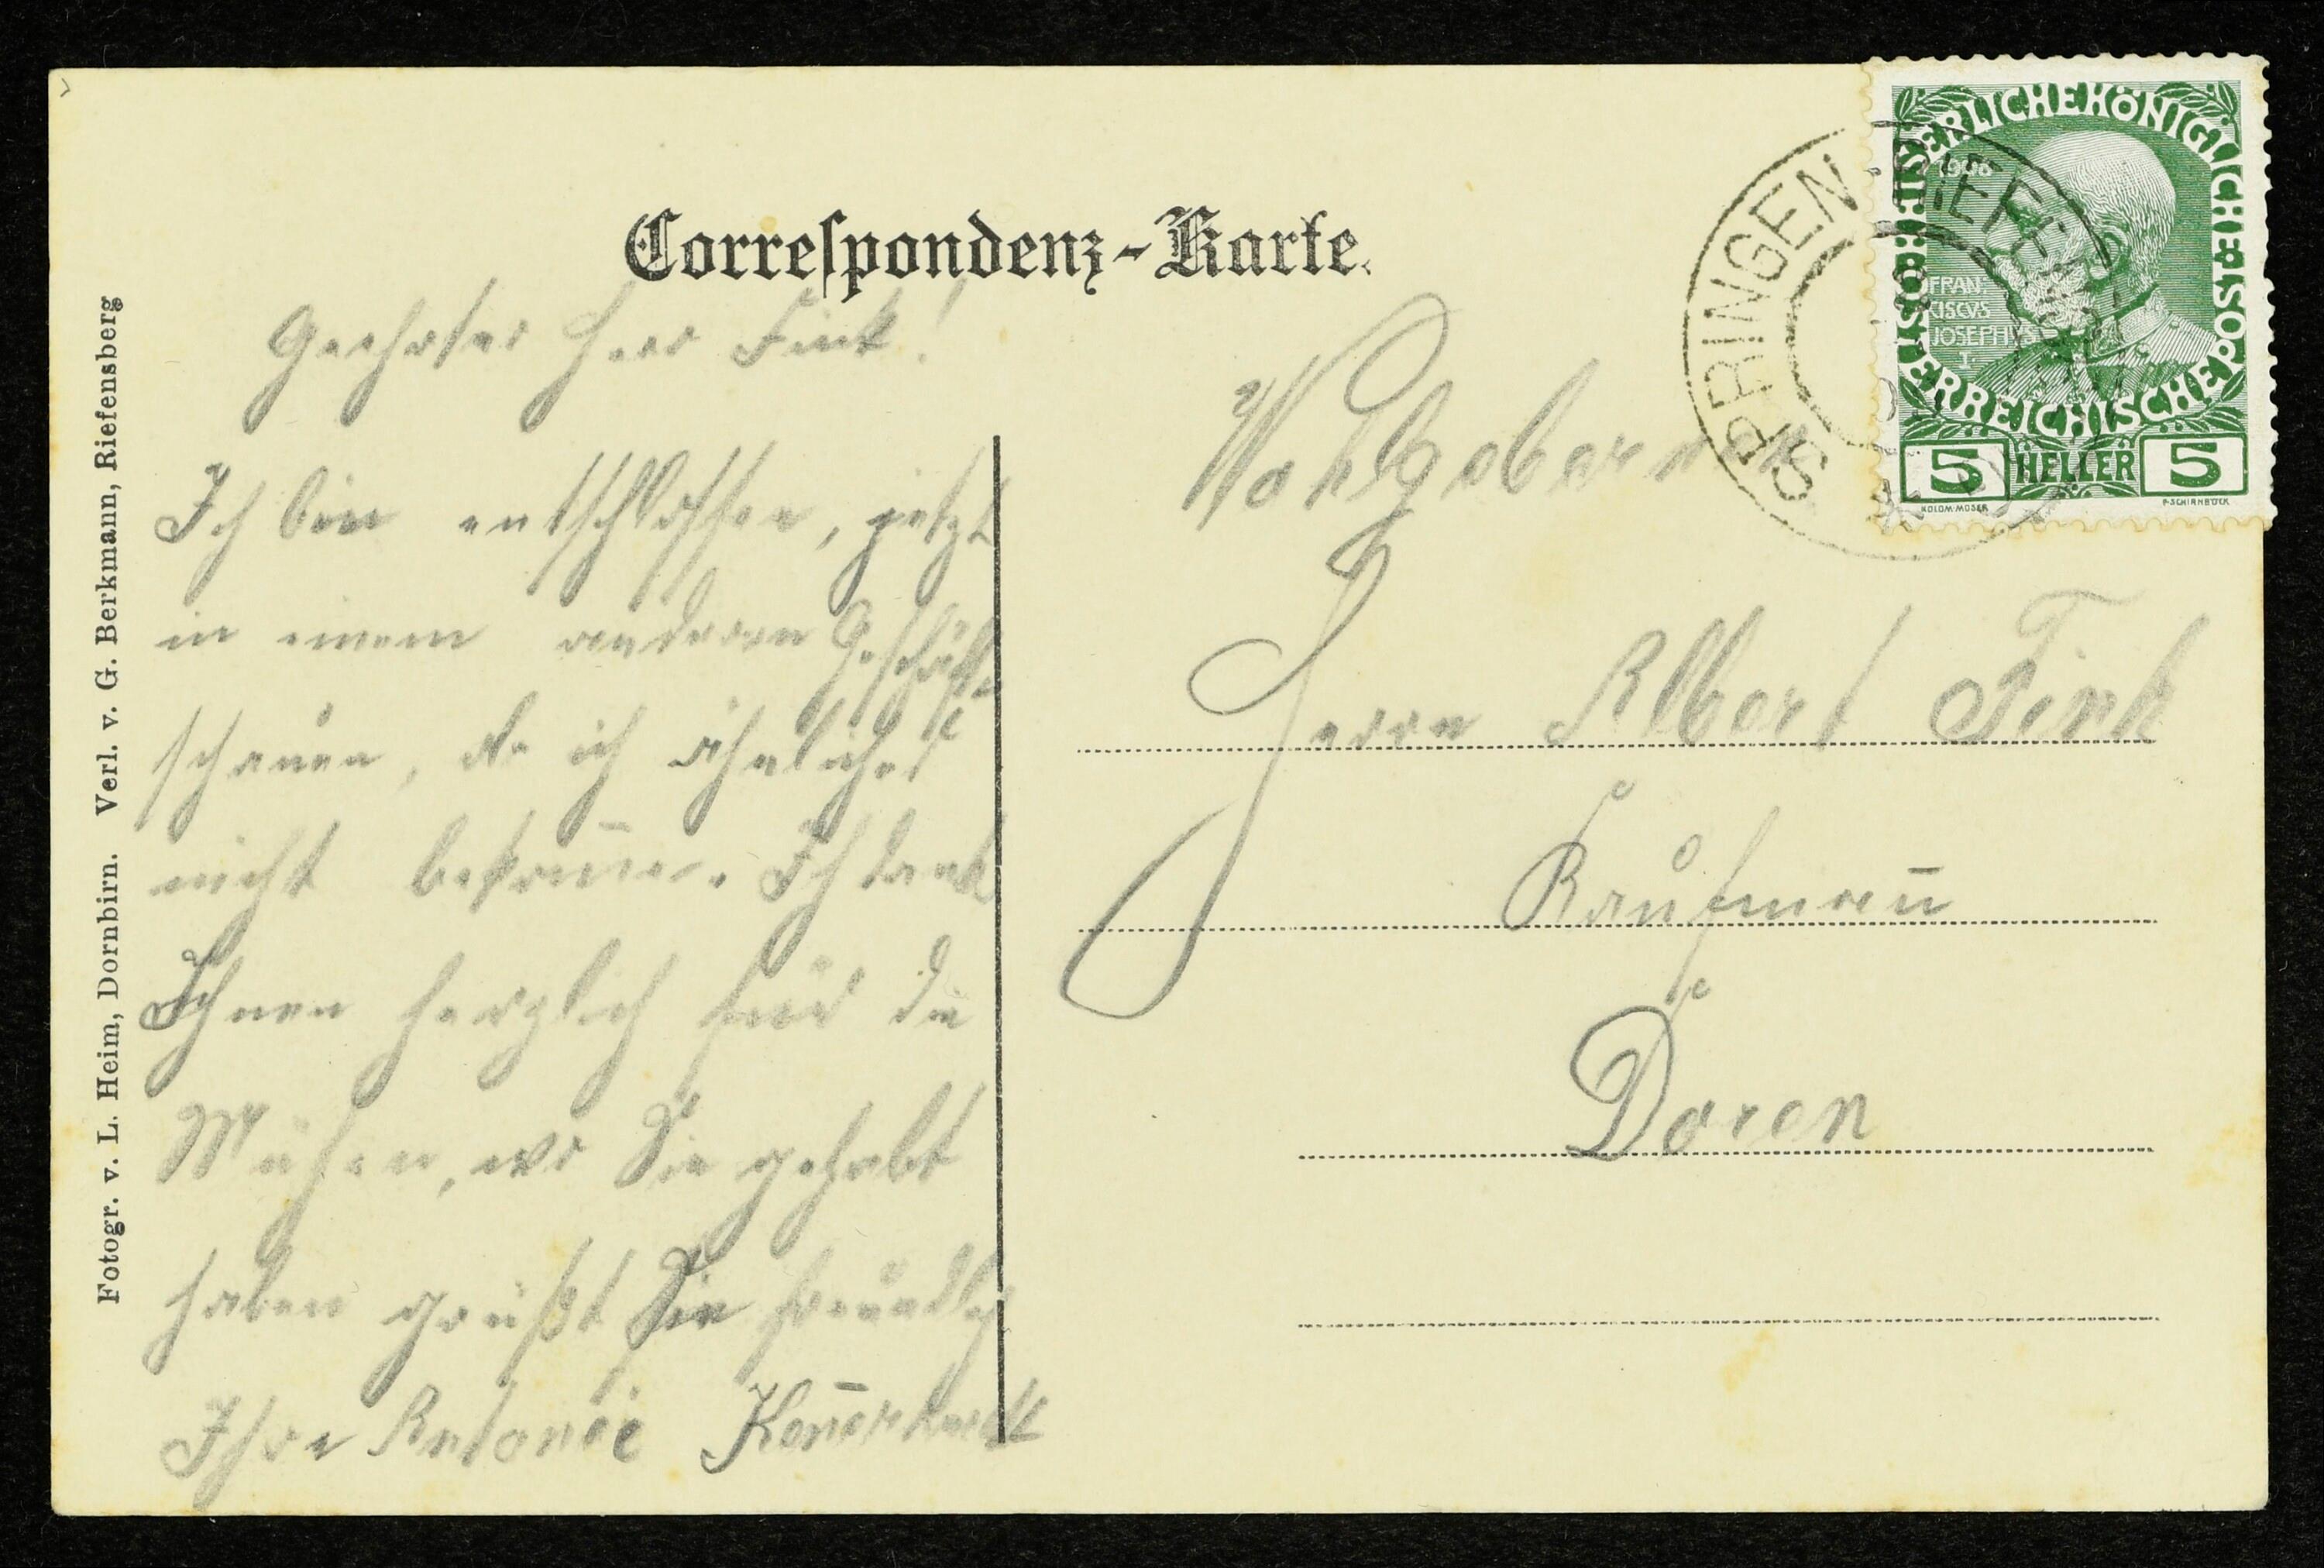 Correspondenz-Karte.
Geehrter Herr Fink!
Ich bin entschlossen, jetzt
in einem anderen Geschäfte
schauen, da ich ähnliches
nicht bekom̅e. Ich dank
Ihnen herzlich für die
Mühen, wo Sie gehabt
haben grüßt Sie freundlich
Ihre Antonie
Wohlgeboren
Herrn Albert Fink
Kaufman̅
Doren
Fotogr. v. L. Heim, Dornbirn. Verl. v. G. Berkmann, Riefensberg
SPRINGEN
KAISERLICHE KÖNIGLICHE ÖSTERREICHISCHE POST
1908
FRAN-
CISCVS
JOSEPHVS
I.
5 HELLER 5
KOLOM·MOSER
F·SCHIRNBÖCK